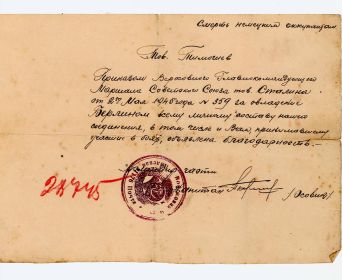 Смерть немецким оккупантам
Тов. Тимочиев
Приказом Верховного Главнокомандующего
Маршала Советского Союза тов. Сталина
от 2го Мая 1945 года № 359 за овладение
Берлином всему личному составу нашего
соединения, в том числе и Вам, принимавшему
участие в боях, объявлена благодарность.
части
капитан /Осовик/